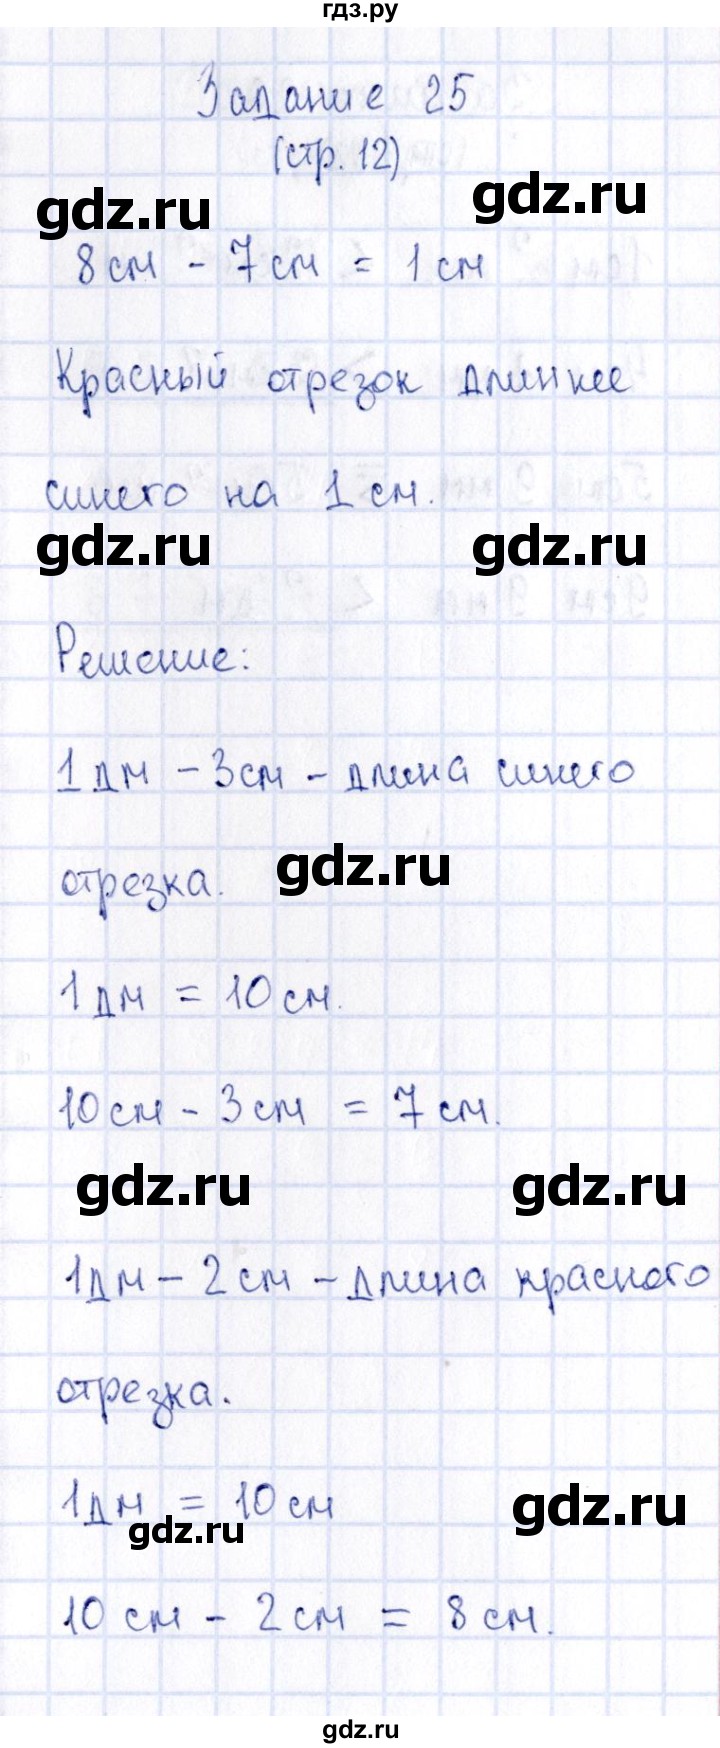 гдз.ру
Задание 25
(стр. 12)
gdz.ru gdz.ru
8 см - 7 см = 1 см
Красный отрезок длиннее
синего на 1 см.
gdz.ru gdz.ru
Решение:
1 дм - 3 см - длина синего
gdz.ru
отрезка.
1 дм = 10 см.
10 см - 3 см = 7 см.
gdz.ru gdz.ru
1 дм - 2 см - длина красного
отрезка.
1 дм = 10 см
gdz.ru gdz.ru
10 см - 2 см = 8 см.
gdz.ru